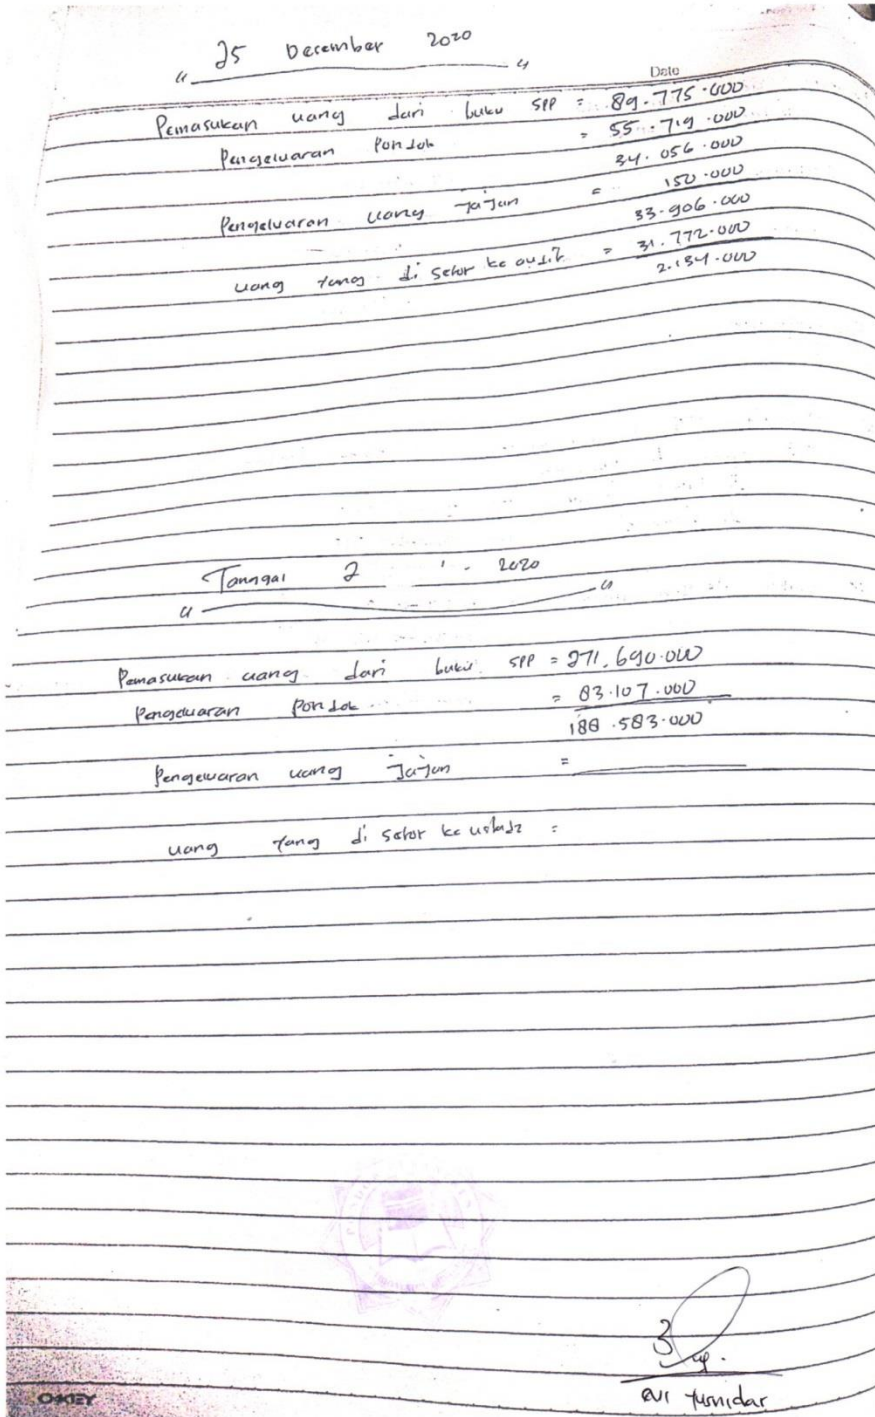 " 25 December 2020 "
Date
Pemasukan uang dari buku SPP = 89.775.000
Pengeluaran Pondok = 55.719.000
34.056.000
Pengeluaran uang jajan = 150.000
33.906.000
uang yang di setor ke = 31.772.000
2.134.000
Tanggal 2 1 - 2020
" "
Pemasukan uang dari buku SPP = 271.690.000
Pengeluaran Pondok = 83.107.000
188.583.000
Pengeluaran uang jajan =
uang yang di setor ke ustadz =
Evi Yusnidar
OKEY